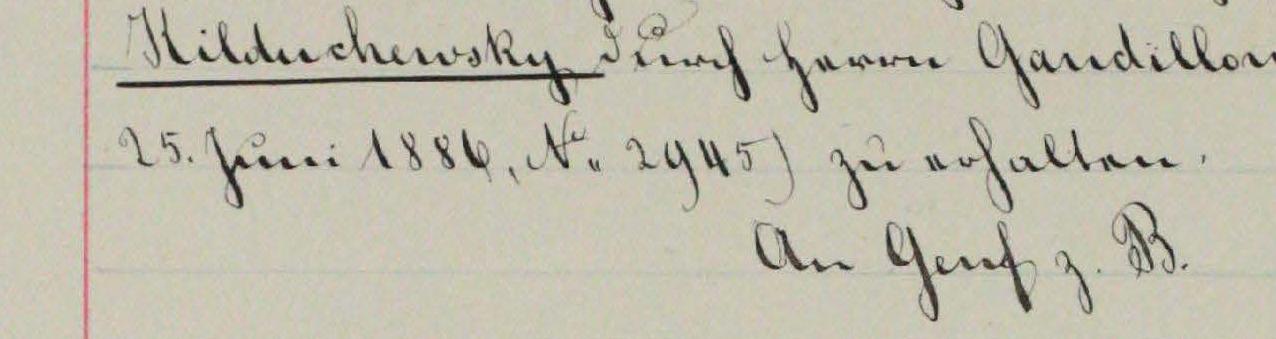 Kilduchewsky durch Herrn Gaudillon
25. Juni 1886, No. 2945) zu erhalten.
An Genf z. B.